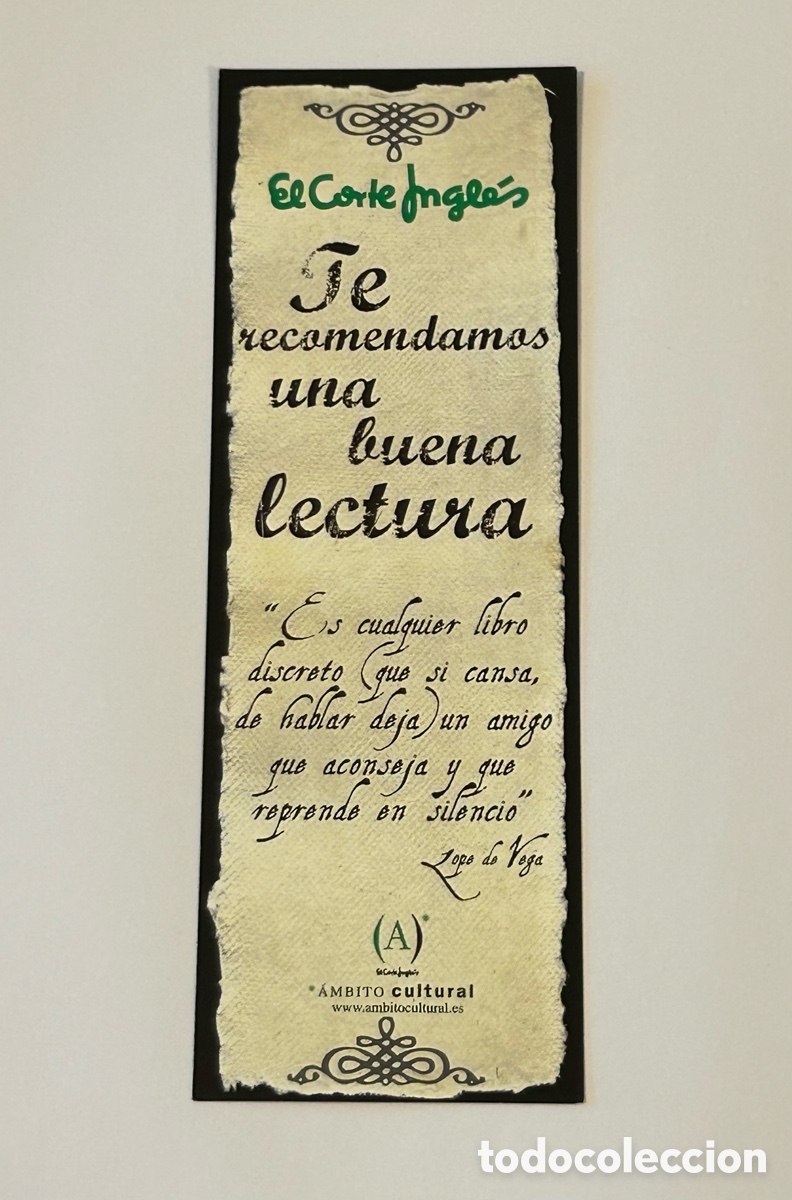 El Corte Inglés
Te
recomendamos
una
buena
lectura
“Es cualquier libro
discreto (que si cansa,
de hablar deja) un amigo
que aconseja y que
reprende en silencio”
Lope de Vega
(A)*
El Corte Inglés
*ÁMBITO cultural
www.ambitocultural.es
todocoleccion